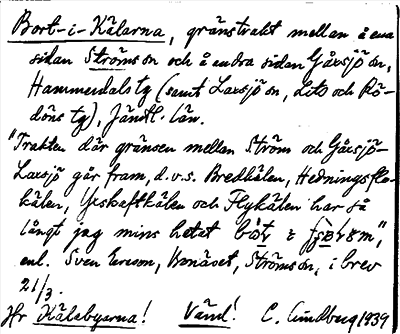 Bort-i-Kälarna, gränstrakt mellan å ena
sidan Ströms sn och å andra sidan Gåxsjö sn,
Hammerdals tg (samt Laxsjö sn, Lits och Rö-
döns tg), Jämtl. län.
"Trakten där gränsen mellan Ström och Gåxsjö-
Laxsjö går fram, d.v.s. Bredkälen, Hedningsflo-
kälen, Yxskaftkälen och Flykälen har så
långt jag mins hetat
enl. Sven Ersson, Bonäset, Ströms sn, i brev
21/3.
Hr Kälabyarna! Vänd! C. Lindberg 1939